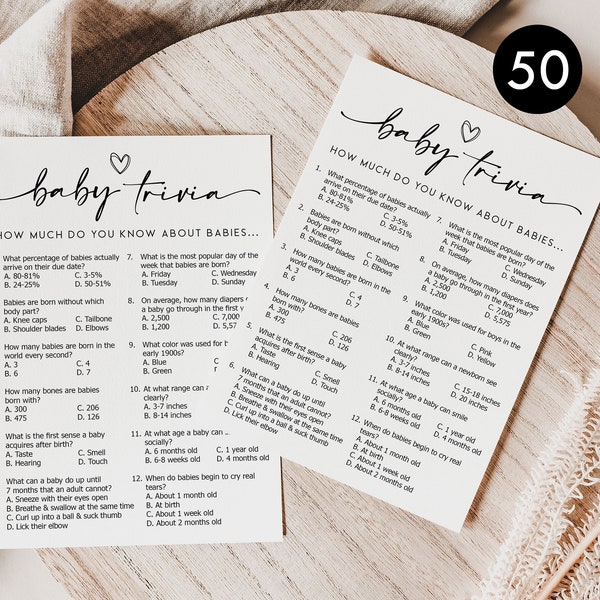 50
baby trivia
HOW MUCH DO YOU KNOW ABOUT BABIES...
What percentage of babies actually
arrive on their due date?
A. 80-81% C. 3-5%
B. 24-25% D. 50-51%
Babies are born without which
body part?
A. Knee caps C. Tailbone
B. Shoulder blades D. Elbows
How many babies are born in the
world every second?
A. 3 C. 4
B. 6 D. 7
How many bones are babies
born with?
A. 300 C. 206
B. 475 D. 126
What is the first sense a baby
acquires after birth?
A. Taste C. Smell
B. Hearing D. Touch
What can a baby do up until
7 months that an adult cannot?
A. Sneeze with their eyes open
B. Breathe & swallow at the same time
C. Curl up into a ball & suck thumb
D. Lick their elbow
7. What is the most popular day of the
week that babies are born?
A. Friday C. Wednesday
B. Tuesday D. Sunday
8. On average, how many diapers does
a baby go through in the first year?
A. 2,500 C. 7,000
B. 1,200 D. 5,57
9. What color was used for
early 1900s?
A. Blue
B. Green
10. At what range can a
clearly?
A. 3-7 inches
B. 8-14 inches
11. At what age a baby can smile
socially?
A. 6 months old C. 1 year old
B. 6-8 weeks old D. 4 months old
12. When do babies begin to cry real
tears?
A. About 1 month old
B. At birth
C. About 1 week old
D. About 2 months old
baby trivia
HOW MUCH DO YOU KNOW ABOUT BABIES...
1. What percentage of babies actually
arrive on their due date?
A. 80-81% C. 3-5%
B. 24-25% D. 50-51%
2. Babies are born without which
body part?
A. Knee caps C. Tailbone
B. Shoulder blades D. Elbows
3. How many babies are born in the
world every second?
A. 3 C. 4
B. 6 D. 7
4. How many bones are babies
born with?
A. 300 C. 206
B. 475 D. 126
5. What is the first sense a baby
acquires after birth?
A. Taste C. Smell
B. Hearing D. Touch
6. What can a baby do up until
7 months that an adult cannot?
A. Sneeze with their eyes open
B. Breathe & swallow at the same time
C. Curl up into a ball & suck thumb
D. Lick their elbow
7. What is the most popular day of the
week that babies are born?
A. Friday C. Wednesday
B. Tuesday D. Sunday
8. On average, how many diapers does
a baby go through in the first year?
A. 2,500 C. 7,000
B. 1,200 D. 5,575
9. What color was used for boys in the
early 1900s?
A. Blue C. Pink
B. Green D. Yellow
10. At what range can a newborn see
clearly?
A. 3-7 inches C. 15-18 inches
B. 8-14 inches D. 20 inches
11. At what age a baby can smile
socially?
A. 6 months old C. 1 year old
B. 6-8 weeks old D. 4 months old
12. When do babies begin to cry real
tears?
A. About 1 month old
B. At birth
C. About 1 week old
D. About 2 months old